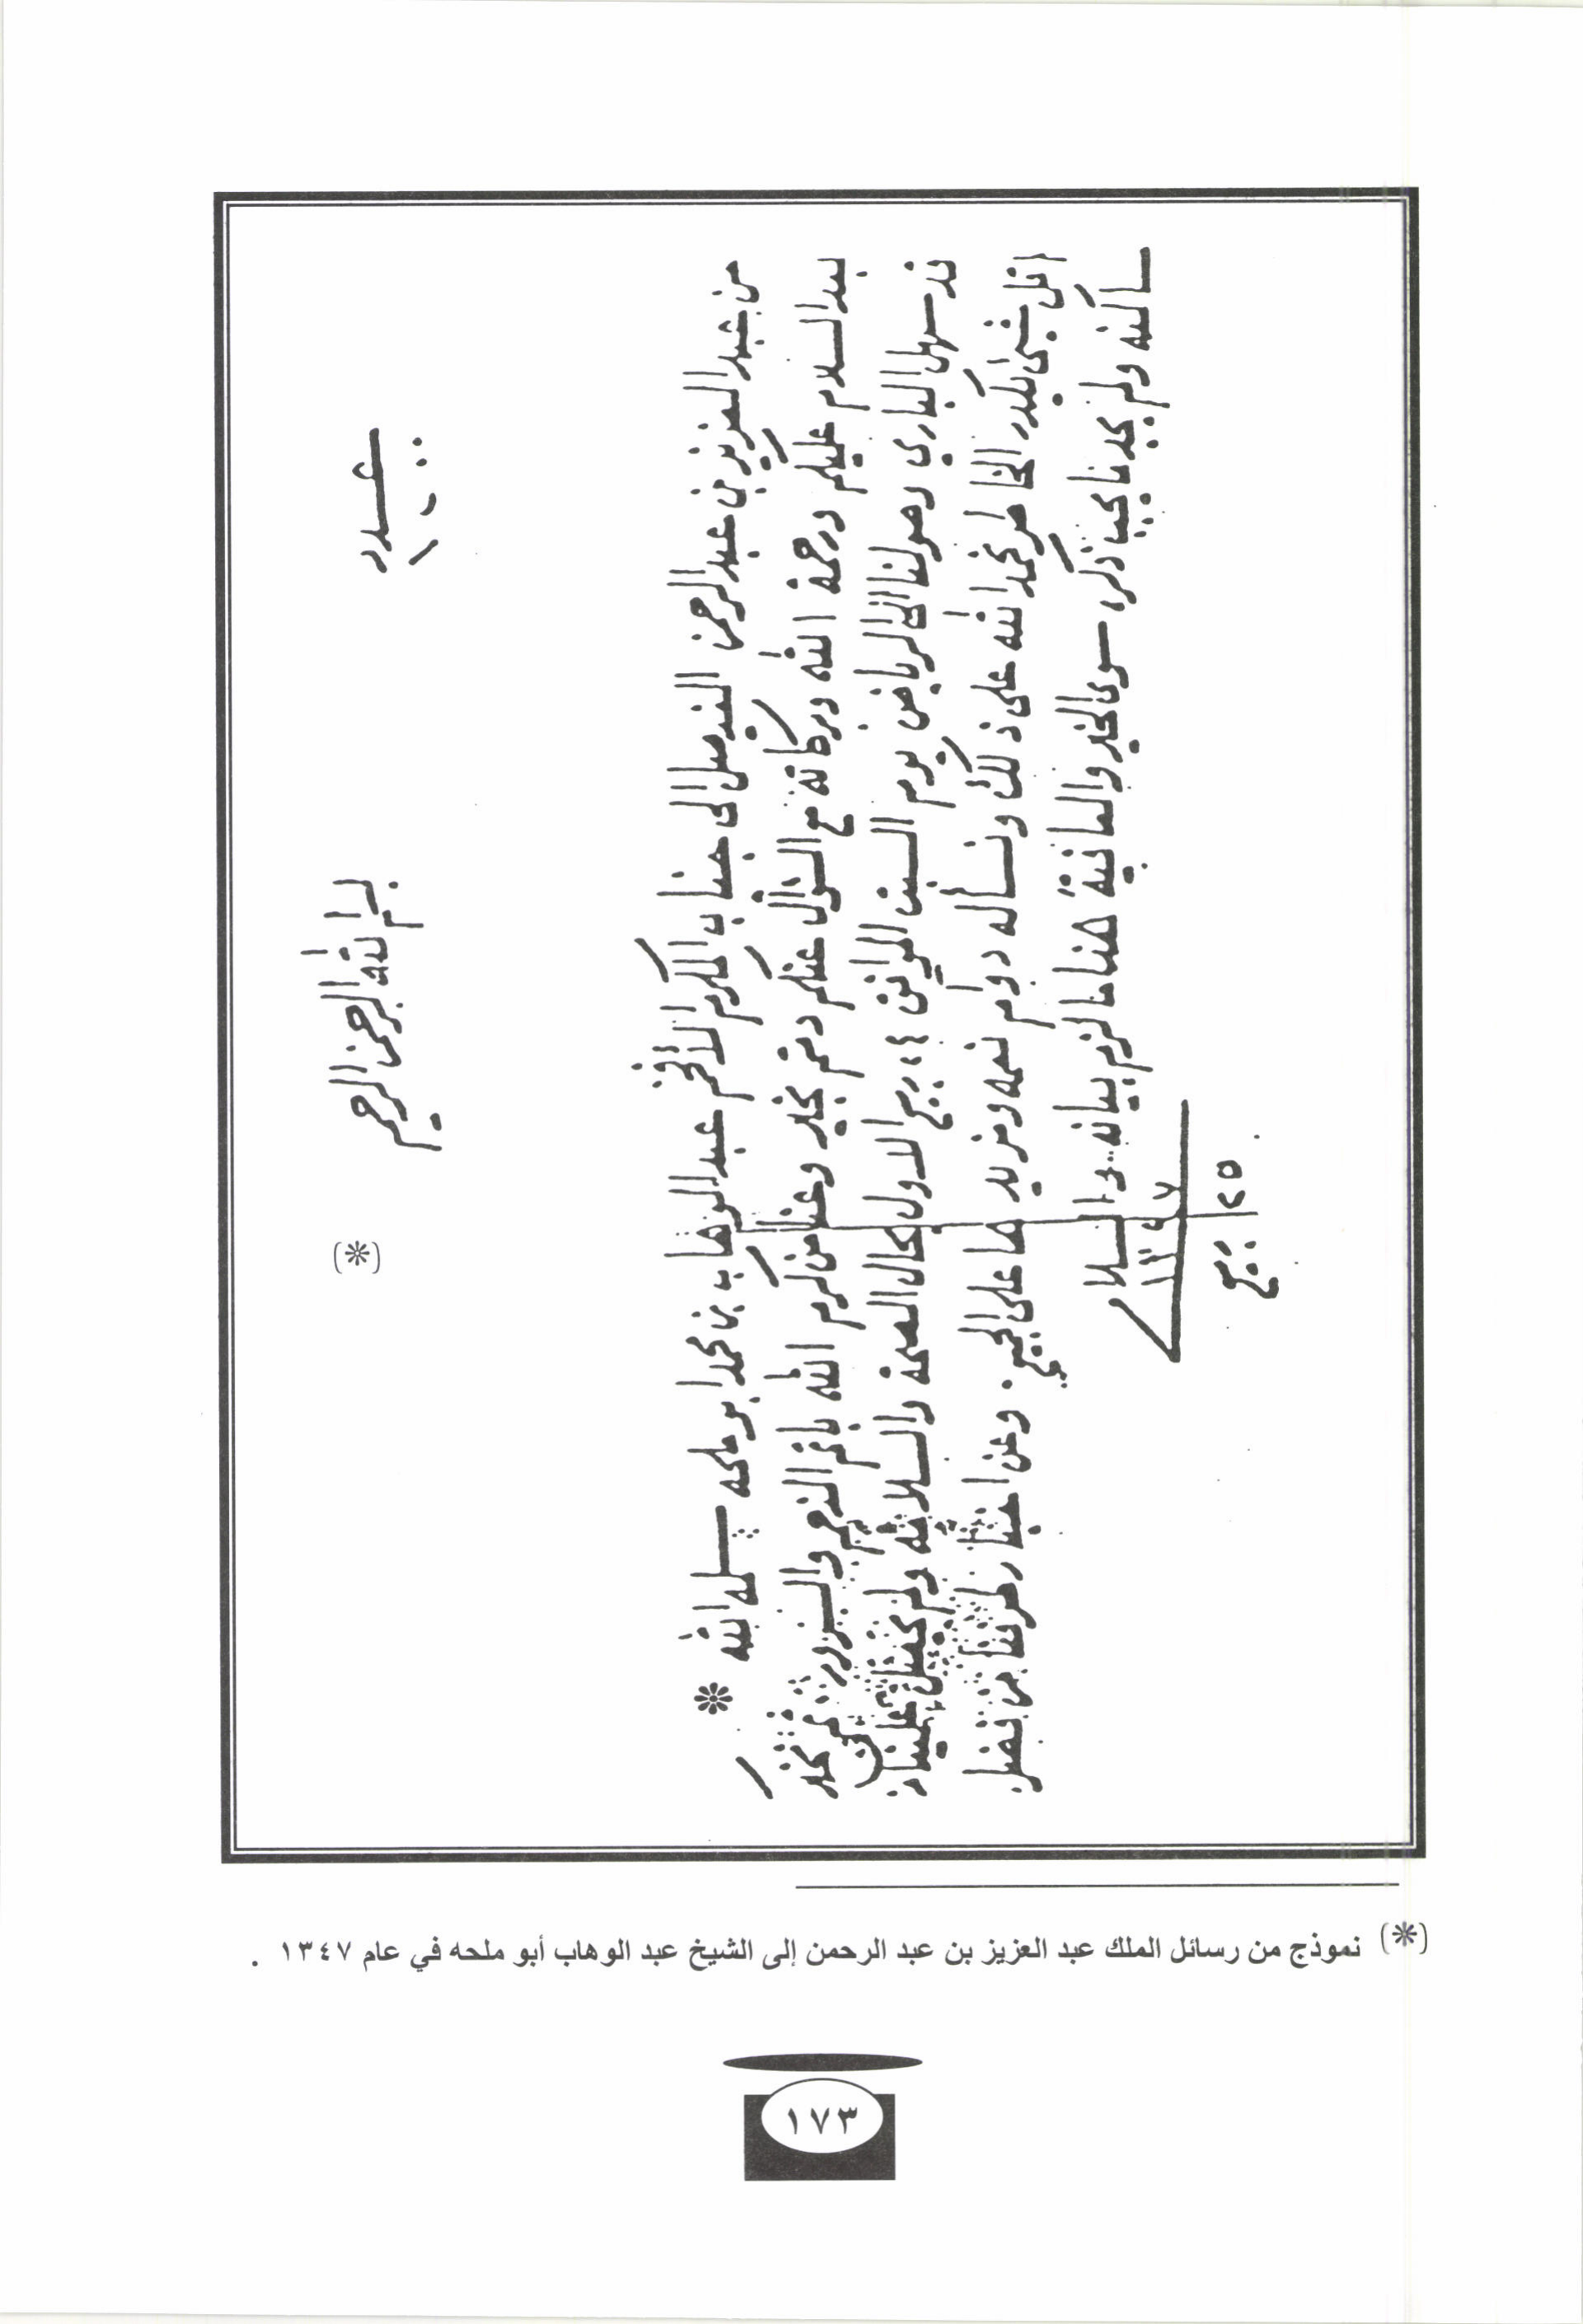 بسم الله الرحمن الرحيم
عدد
(*)
من عبد العزيز بن عبد الرحمن الفيصل الى جناب المكرم الافخم عبد الوهاب بن محمد ابو ملحه سلمه الله *
بعد السلام عليكم ورحمة الله وبركاته مع السؤال عنكم دمتم بخير وعنا من كرم الله باتم النعم والسرور
قد سهل الباري وصولنا الى الرياض يوم السبت الموافق ٢٤ ربيع الاول بحال الصحة والسلامه ولم يحصل علينا
اقل شي يكدر الخاطر نحمد الله على ذلك ونسأله دوام نعمه ومزيدها على الجميع وعن اخبار طرفنا من فضل
ساكنه ولم يجد ما يجب ذكره سوى الخير والعافية هذا ما لزم بيانه والسلام
١٣٤٧
٢٥ ربيع
(*) نموذج من رسائل الملك عبد العزيز بن عبد الرحمن إلى الشيخ عبد الوهاب أبو ملحه في عام ١٣٤٧ .
١٧٣